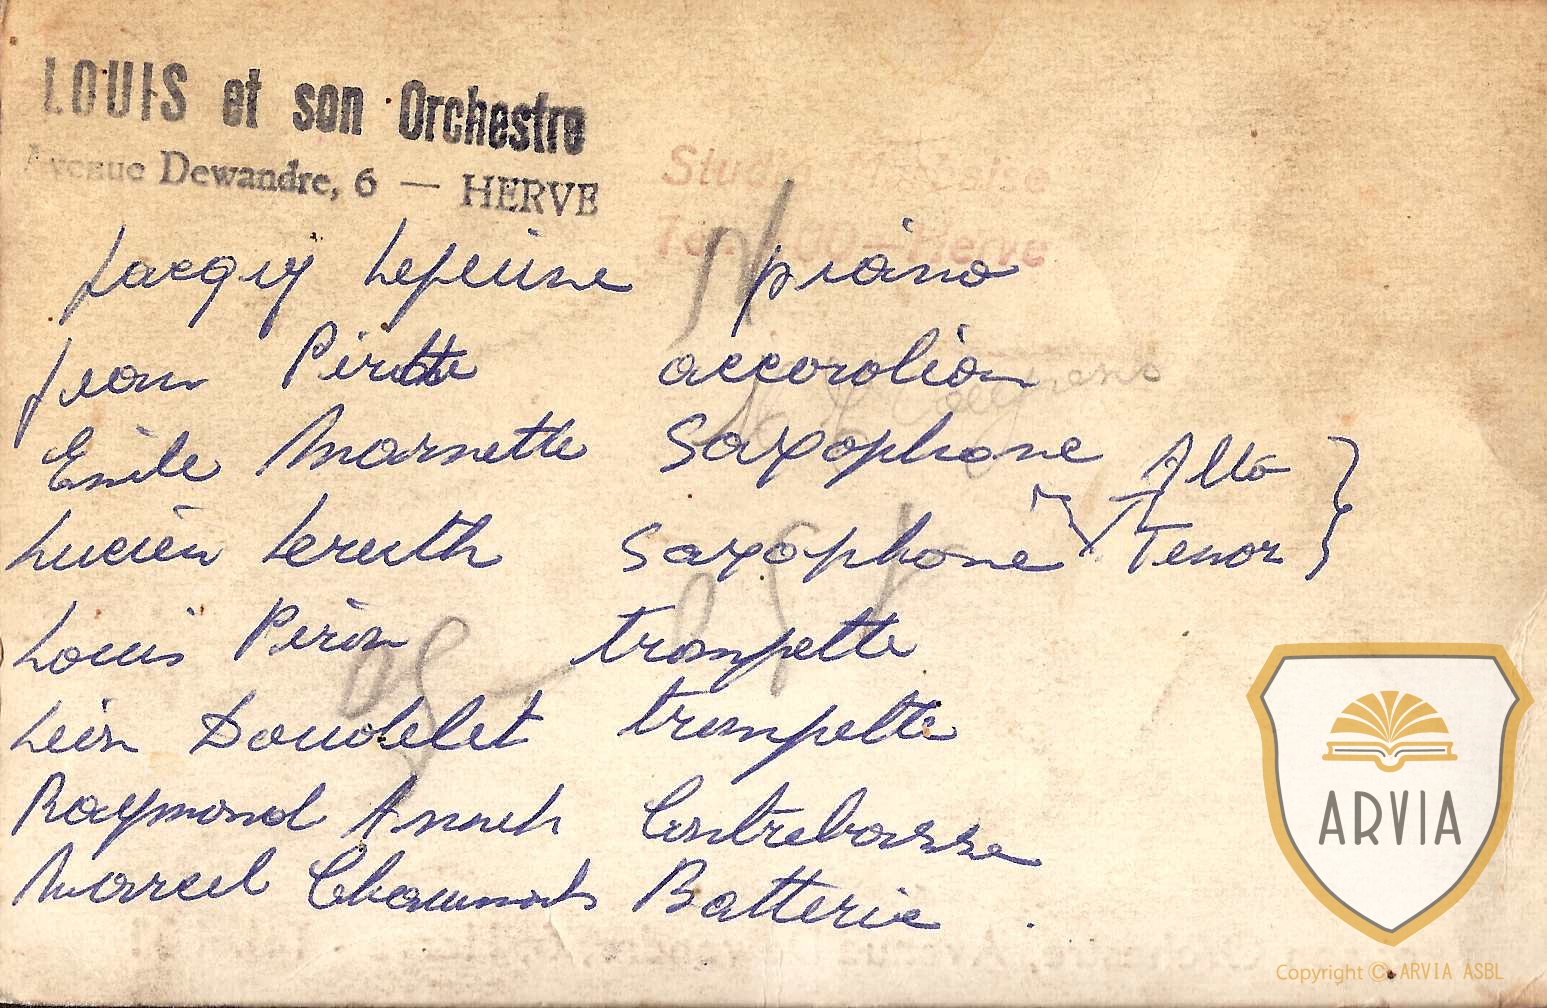 LOUIS et son Orchestre
Avenue Dewandre, 6 — HERVE
Studio
Herve
Jacqy Lejeune piano
Jean Pirotte accordion
Emile Marnette Saxophone Alto
Lucien Leruth Saxophone Tenor
Louis Piron trompette
Léon Doudelet trompette
Raymond Contrebasse
Marcel Batterie
ARVIA
Copyright © ARVIA ASBL